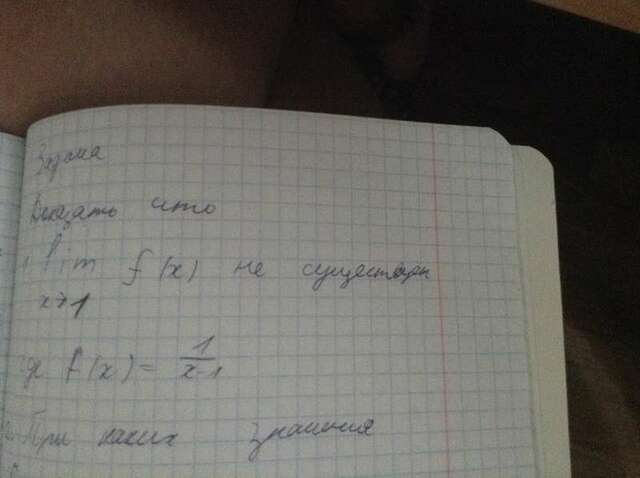 Задача
Доказать что
lim f(x) не существ
x→1
f(x) = 1/(x-1)
При каких значения